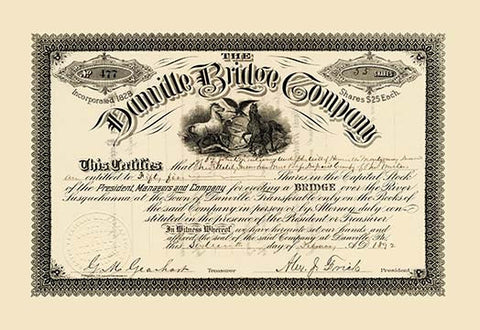 THE
Danville Bridge Company
No 477
55 SHARES
Incorporated 1828
Shares $25 Each.
This Certifies that
entitled to Fifty five Shares in the Capital Stock
of the President, Managers and Company for erecting a BRIDGE over the River
Susquehanna, at the Town of Danville Transferable only on the Books of
the said Company in person or by Attorney, duly con-
stituted in the presence of the President or Treasurer.
In Witness Whereof, we have hereunto set our hands and
affixed the seal of the said Company at Danville, Pa.
this day of A.D. 18
G. M. Gearhart Treasurer Alex. J. Frick President